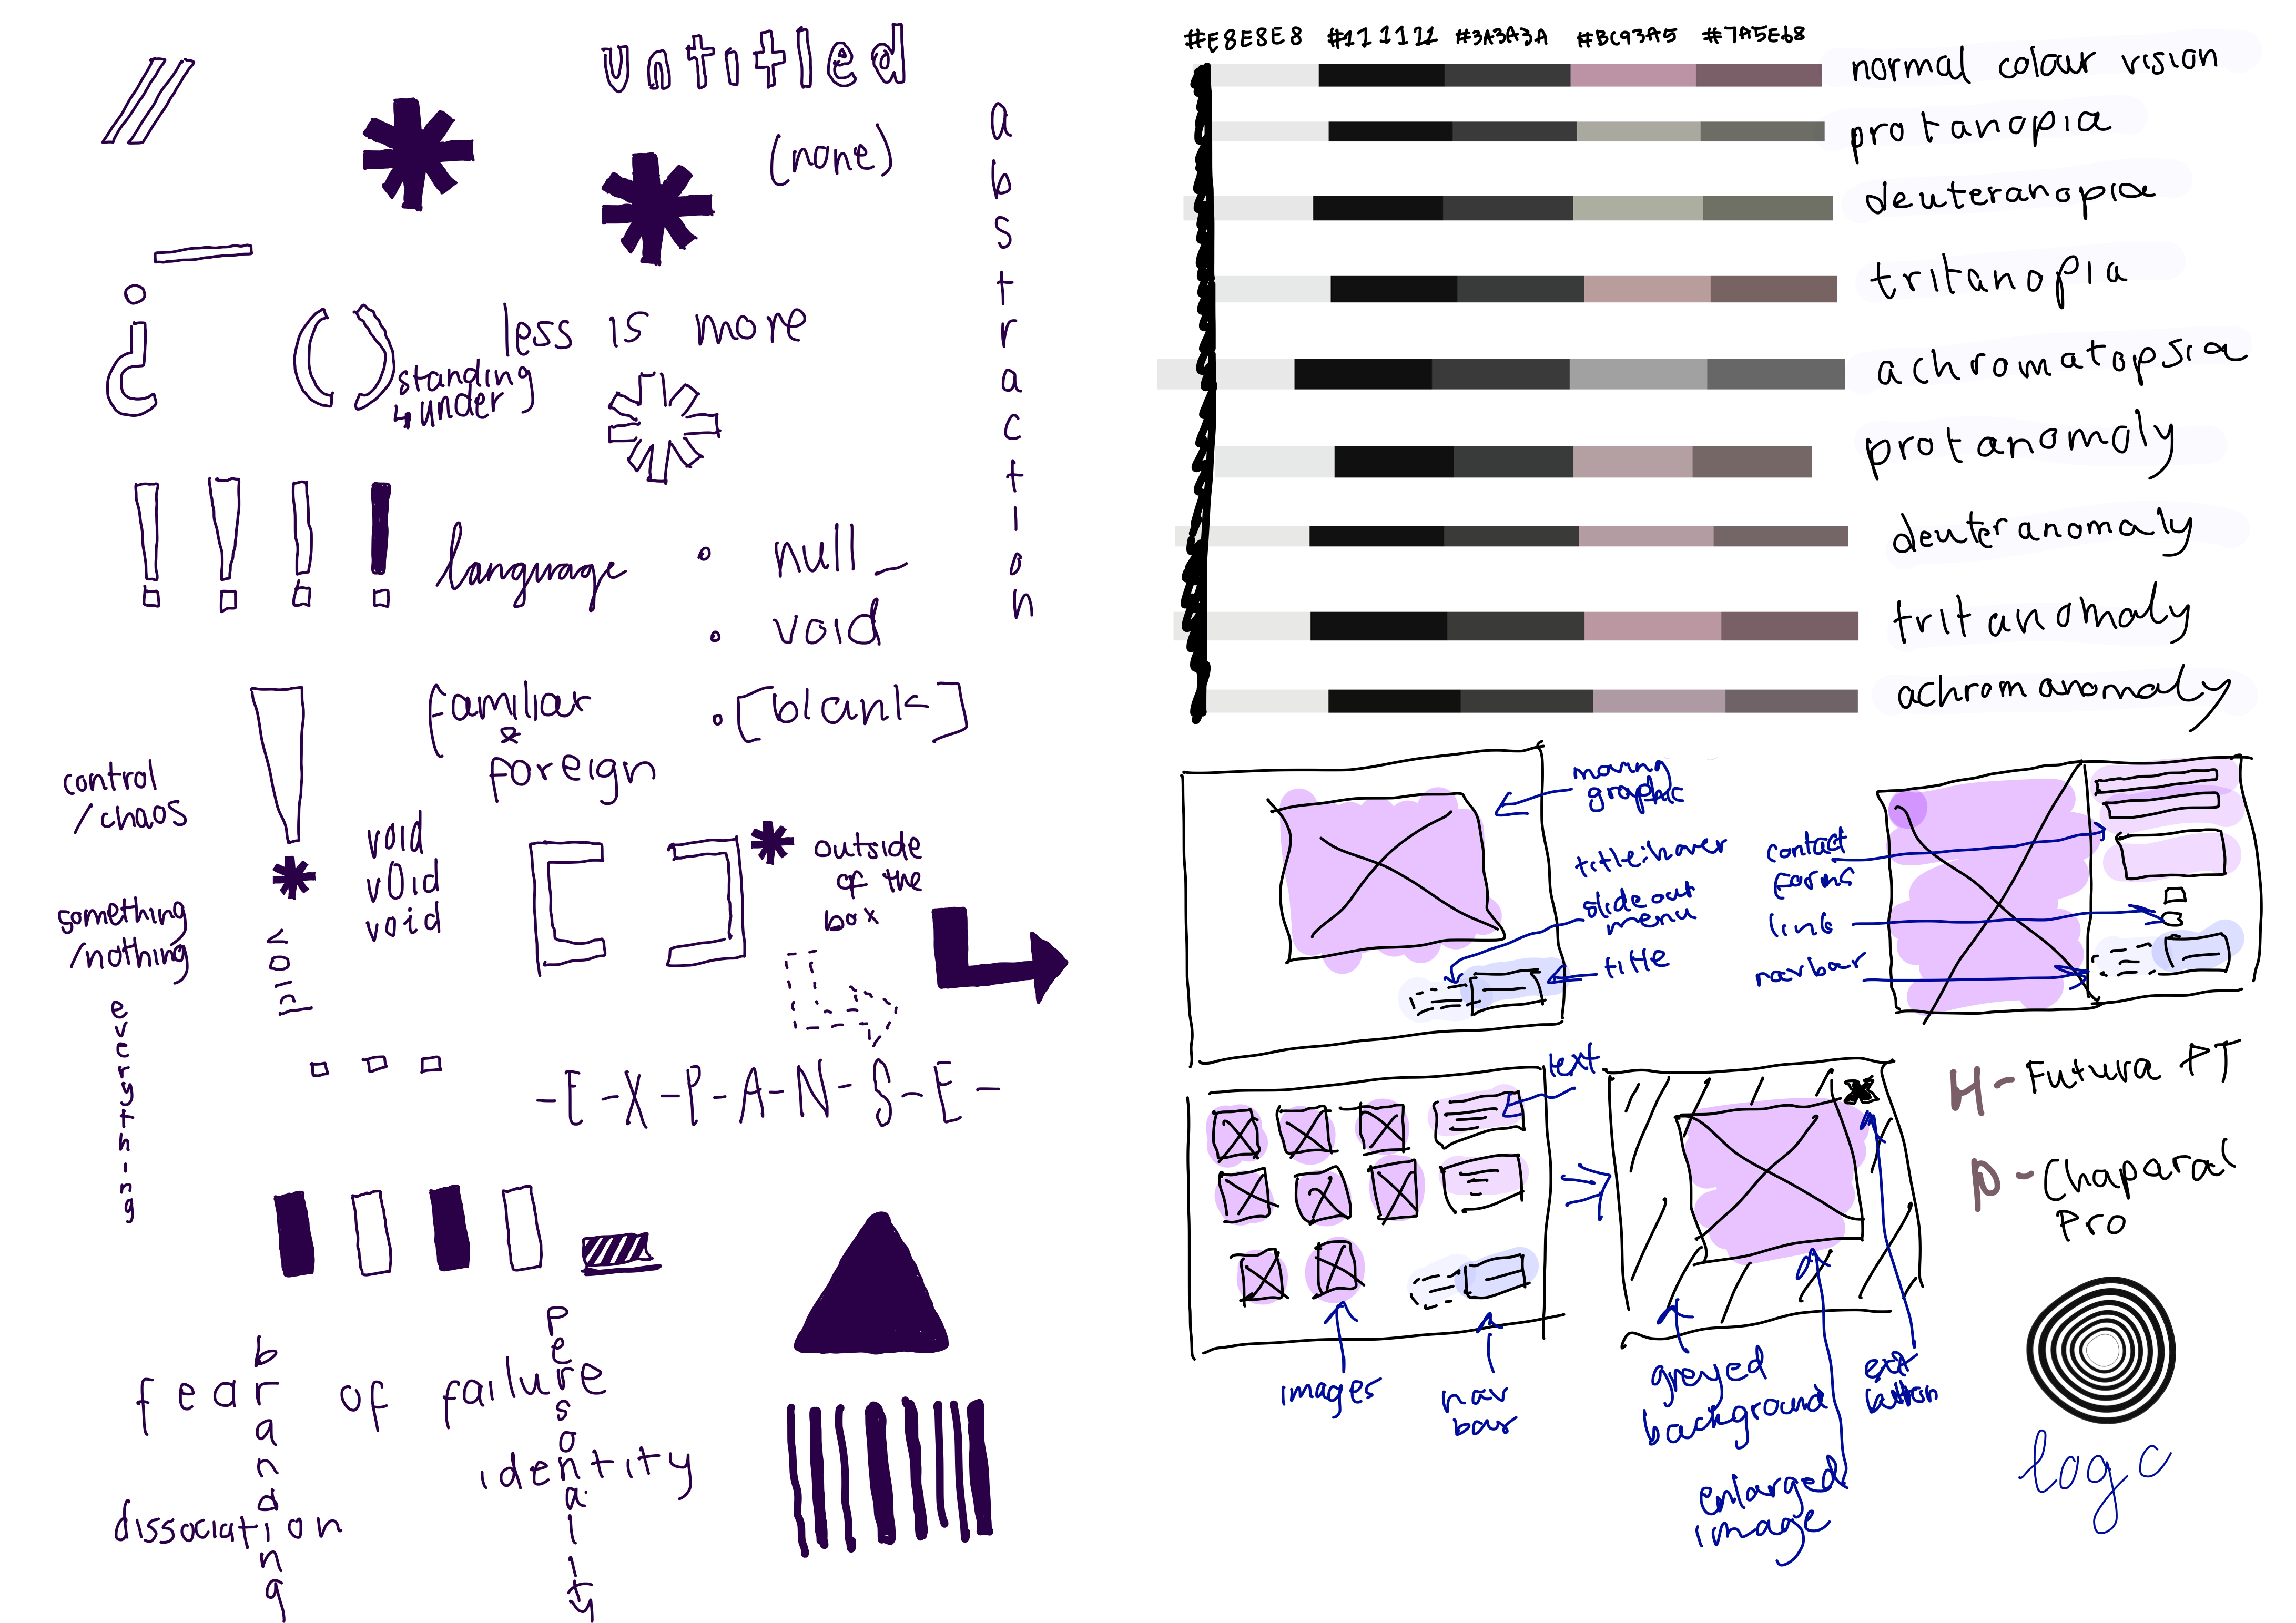 untitled
(none)
abstraction
less is more
standing
↳ under
language
• null_
• void
• [blank]
familiar
&
foreign
control
/chaos
something
/nothing
everything
void
void
v0id
void
outside
of the
box
-E-X-P-A-N-S-E-
fear of failure
branding
personality
identity
dissociation
#E8E8E8 #111111 #3A3A3A #BC93A5 #7A5E68
normal colour vision
protanopia
deuteranopia
tritanopia
achromatopsia
protanomoly
deuteranomaly
tritanomaly
achromanomaly
moving
graphic
title:hover
slide out
menu
title
contact
forms
link
navbar
text
images
nav
bar
greyed
background
enlarged
image
exit
button
H- Futura PT
P- Chaparal
Pro
logo